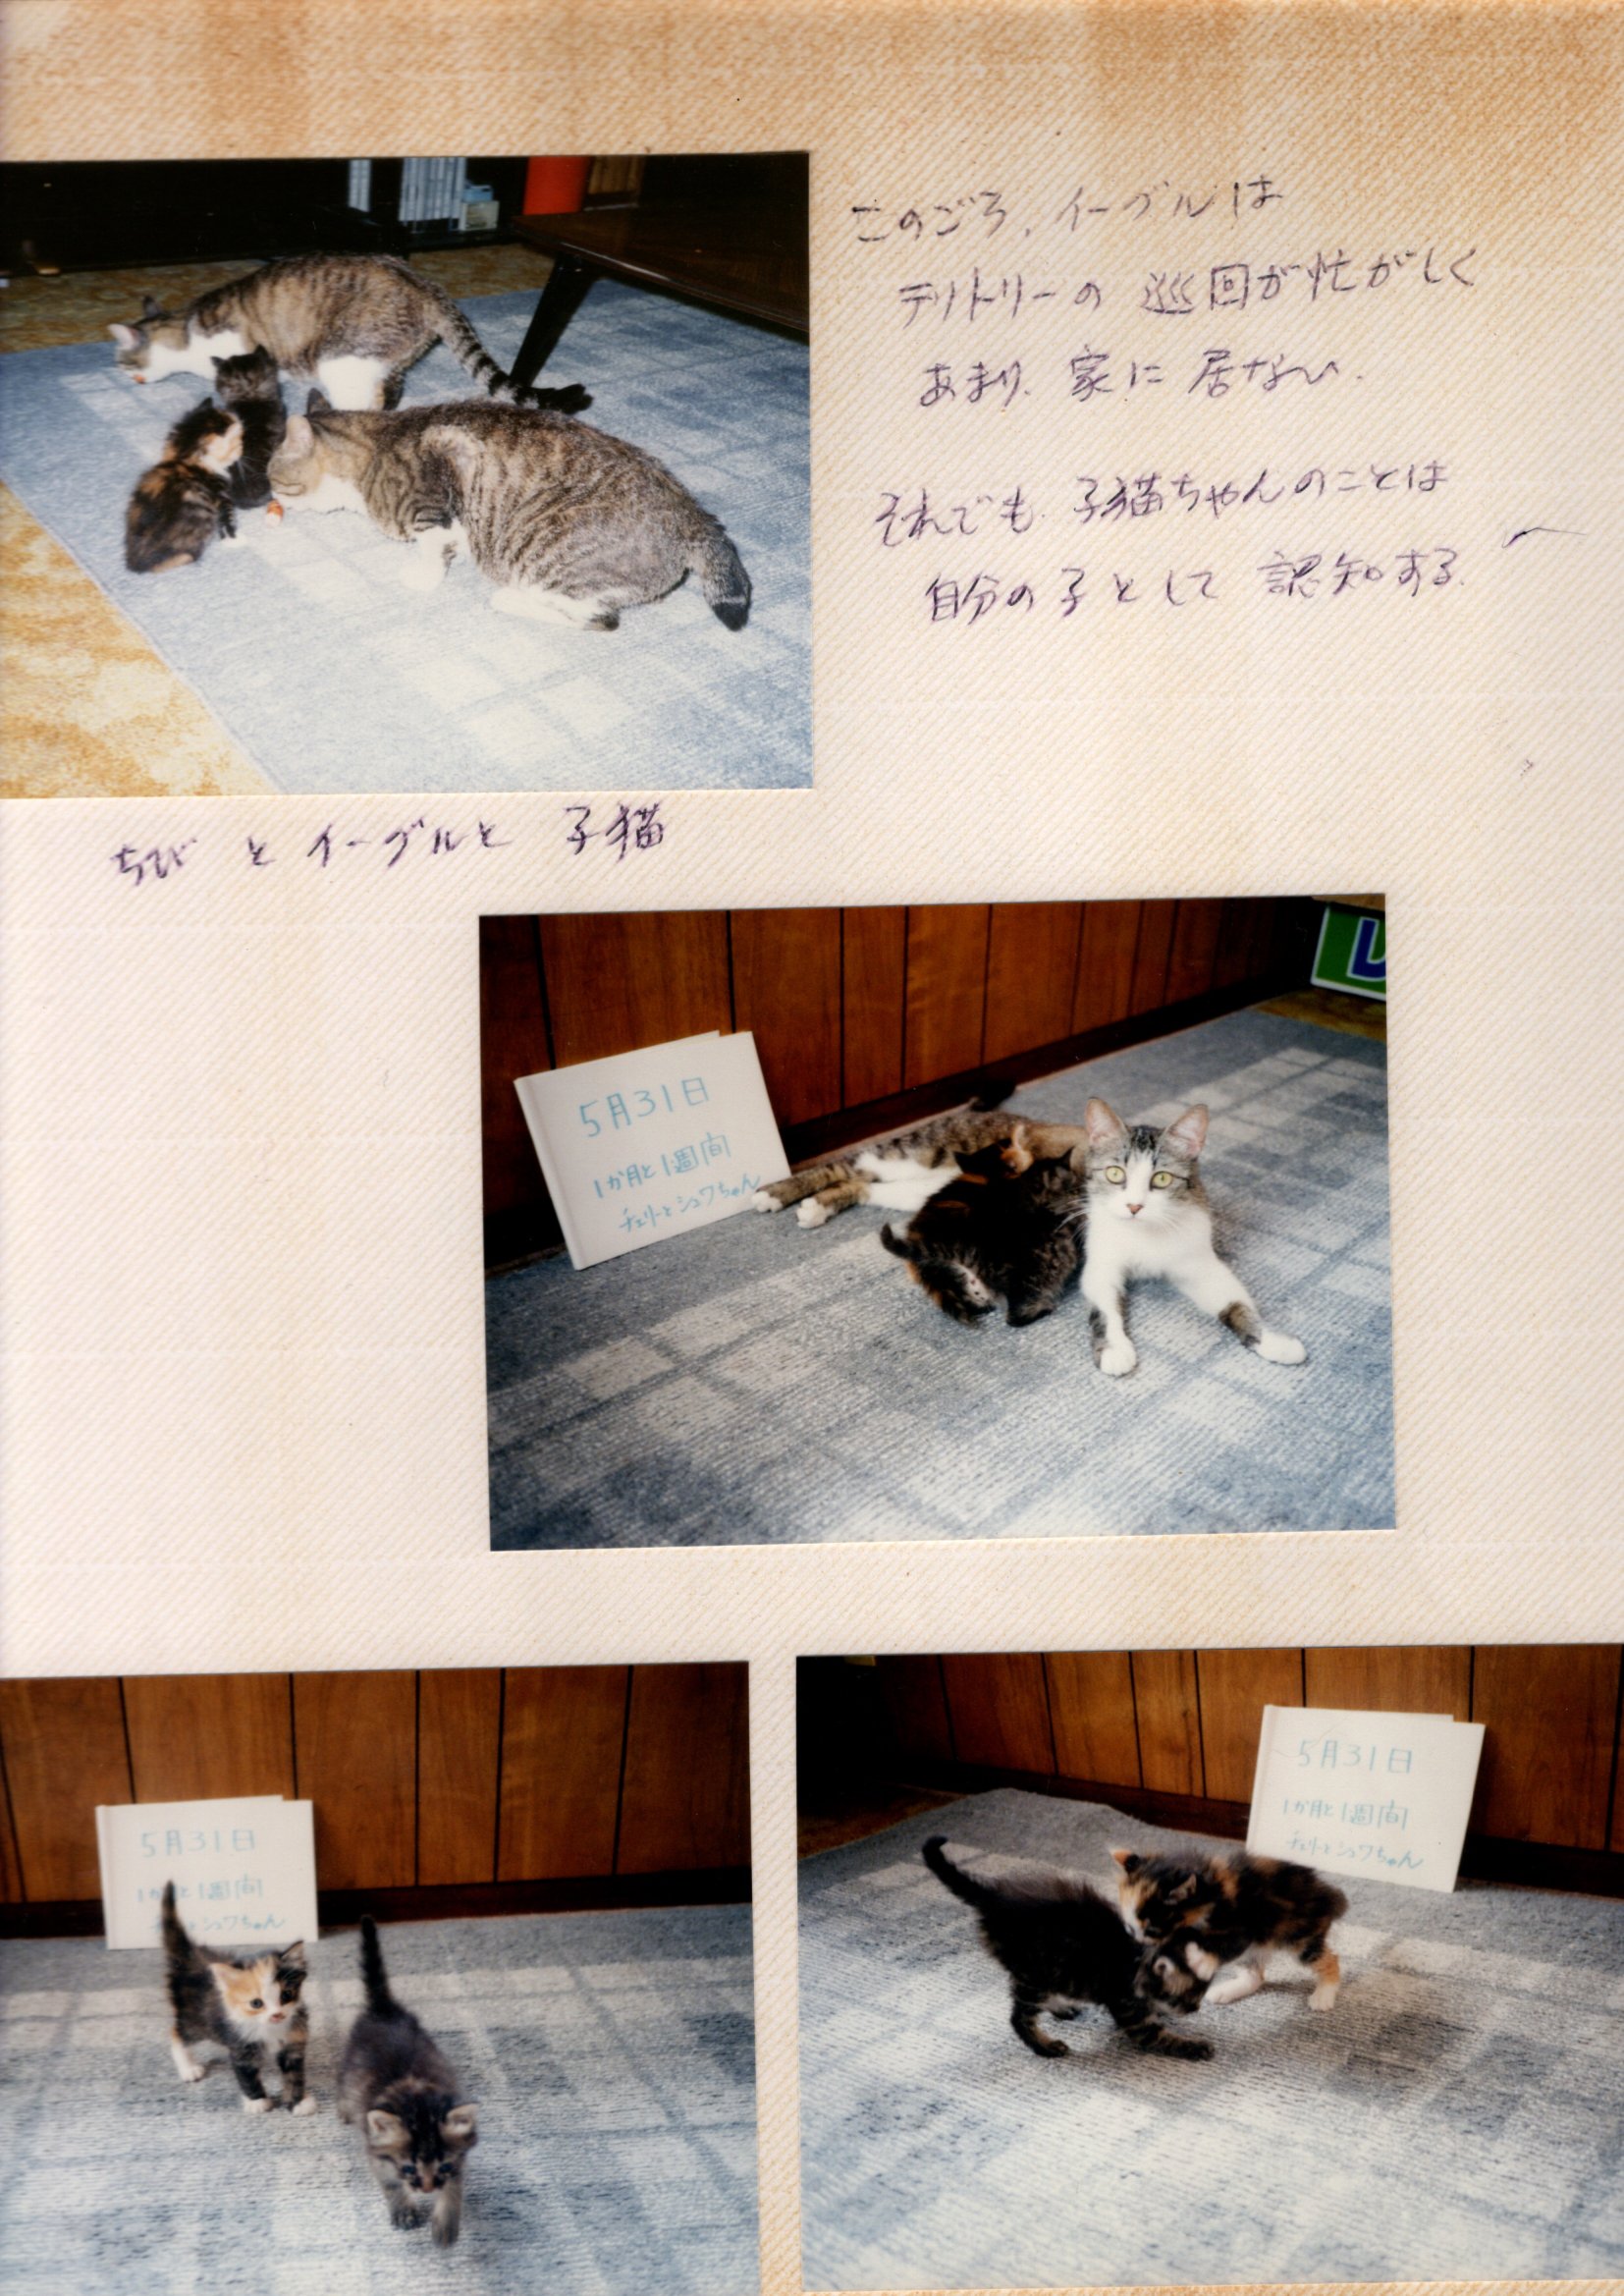 このごろ、イーグルは
テリトリーの 巡回が忙がしく
あまり、家に 居ない.
それでも、子猫ちゃんのことは
自分の子として 認知する.
ちび と イーグルと 子猫
5月31日
1か月と1週間
チェリーとシュワちゃん
5月31日
1か月と1週間
シュワちゃん
5月31日
1か月と1週間
チェリーとシュワちゃん